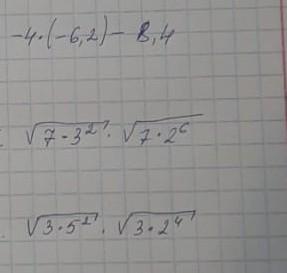 -4·(-6,2) - 8,4
√(7·3²) · √(7·2⁶)
√(3·5²) · √(3·2⁴)